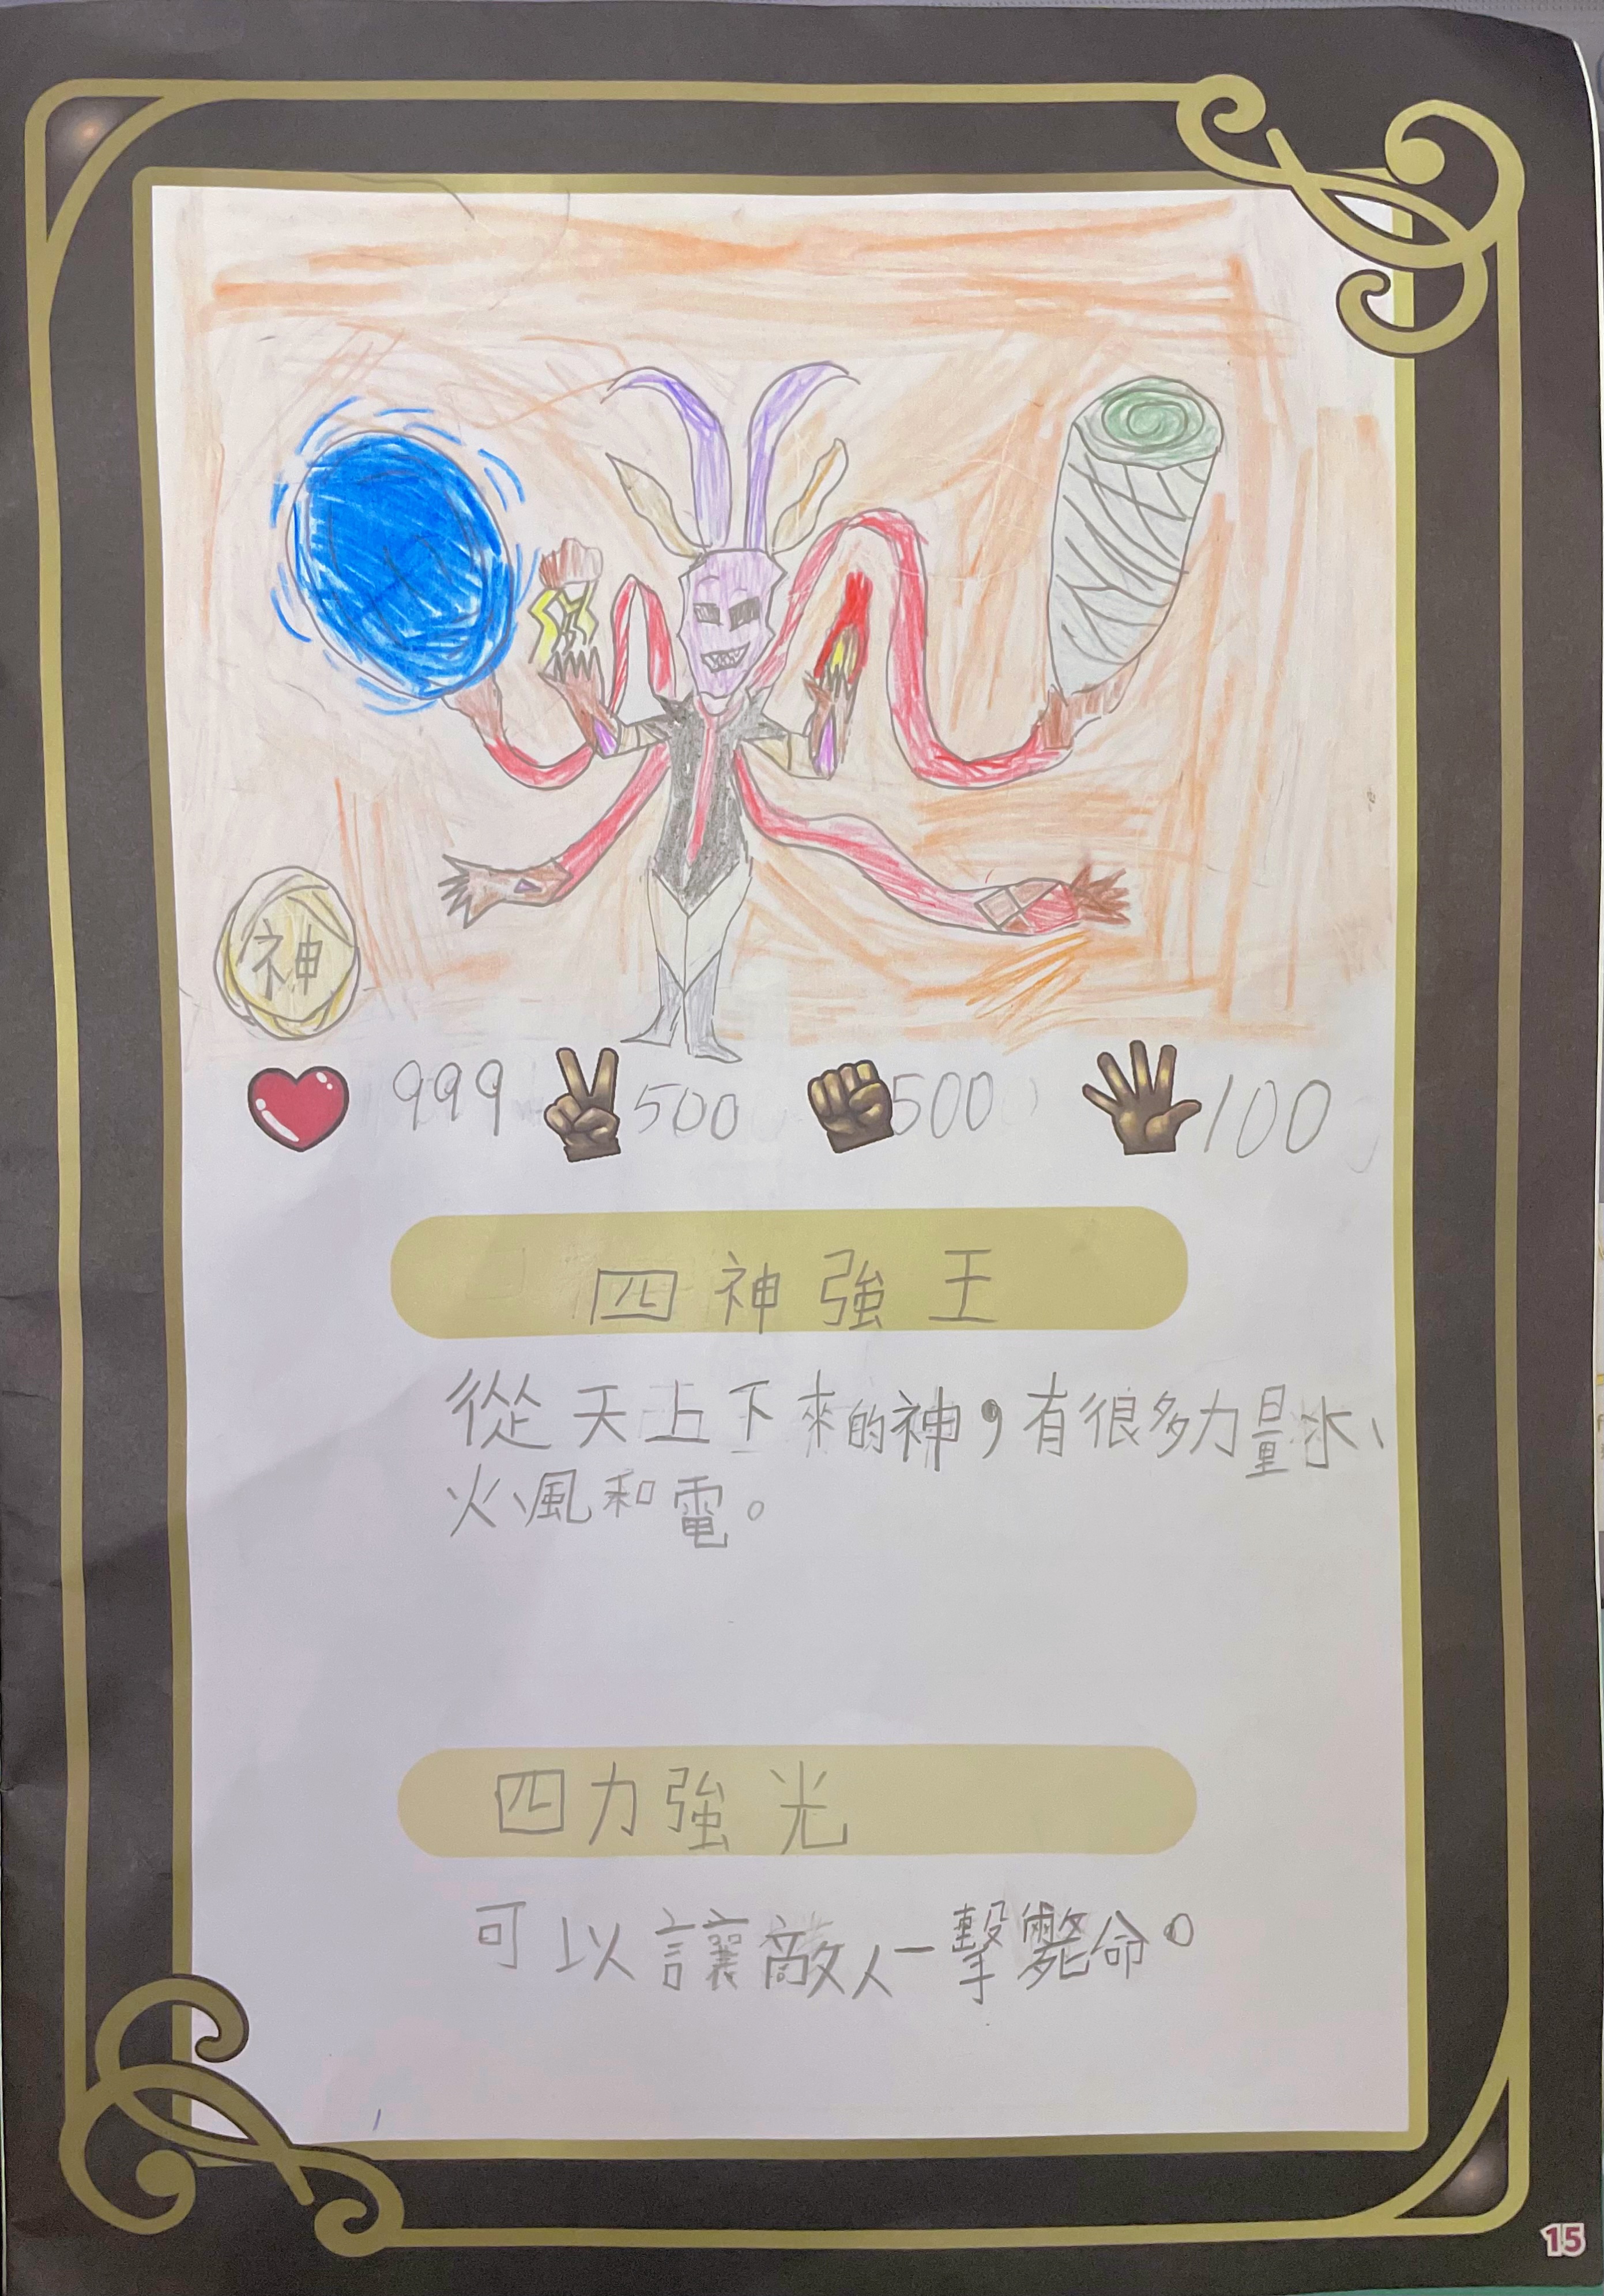 神
999 500 500 100
四神強王
從天上下來的神,有很多力量水、
火、風和電。
四力強光
可以讓敵人一擊斃命。
15